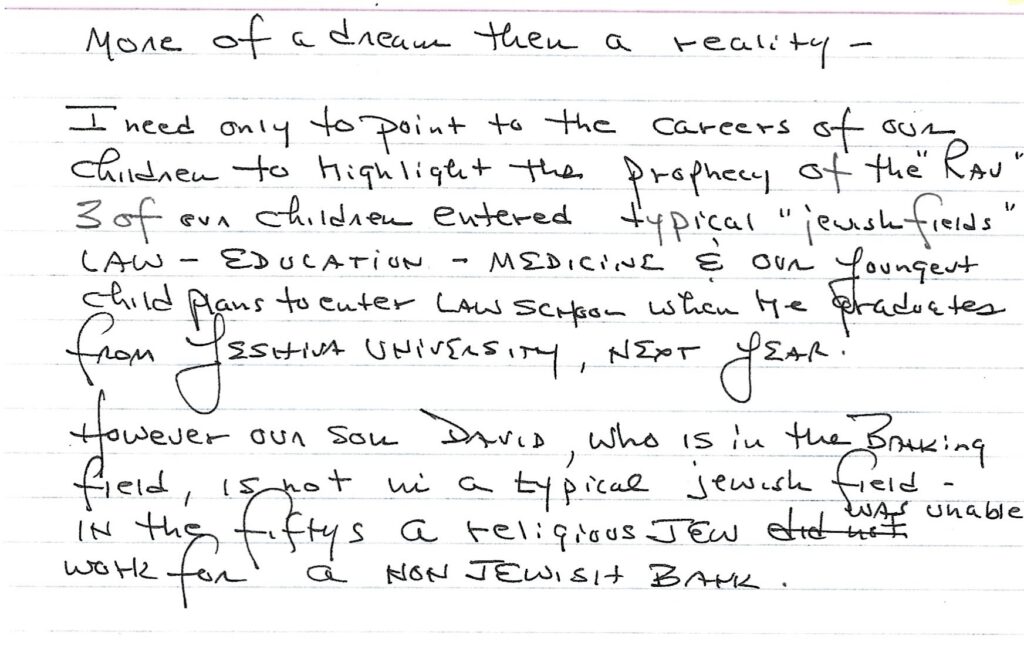 More of a dream then a reality -
I need only to point to the careers of our
children to Highlight the prophecy of the "RAV"
3 of our children entered typical "jewish fields"
LAW - EDUCATION - MEDICINE & our Youngest
child plans to enter LAW School when He graduates
from YESHIVA UNIVERSITY, NEXT YEAR.
However our son DAVID, who is in the Banking
field, is not in a typical jewish field -
IN the fiftys a religious JEW did not was unable
work for a NON JEWISH BANK.